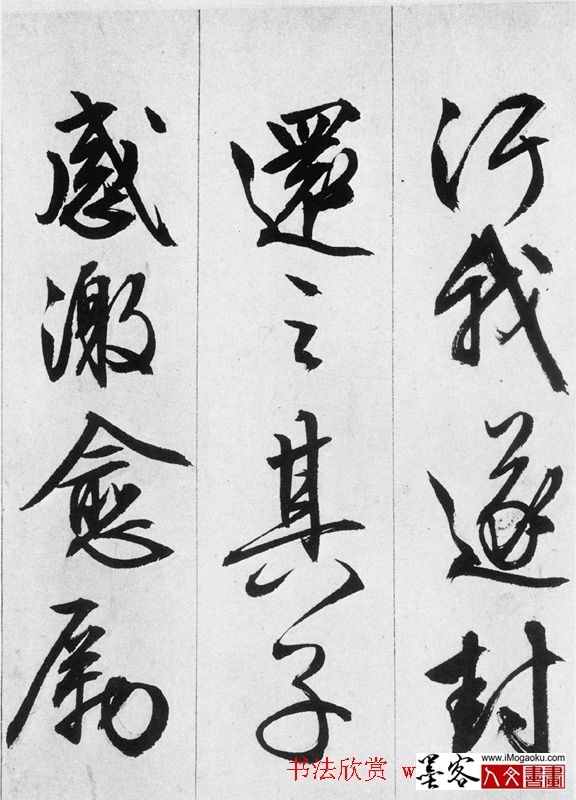 汙我遂封
還之其子
感激愈厲
书法欣赏 w
墨客
www.iMogaoku.com
人文書畫